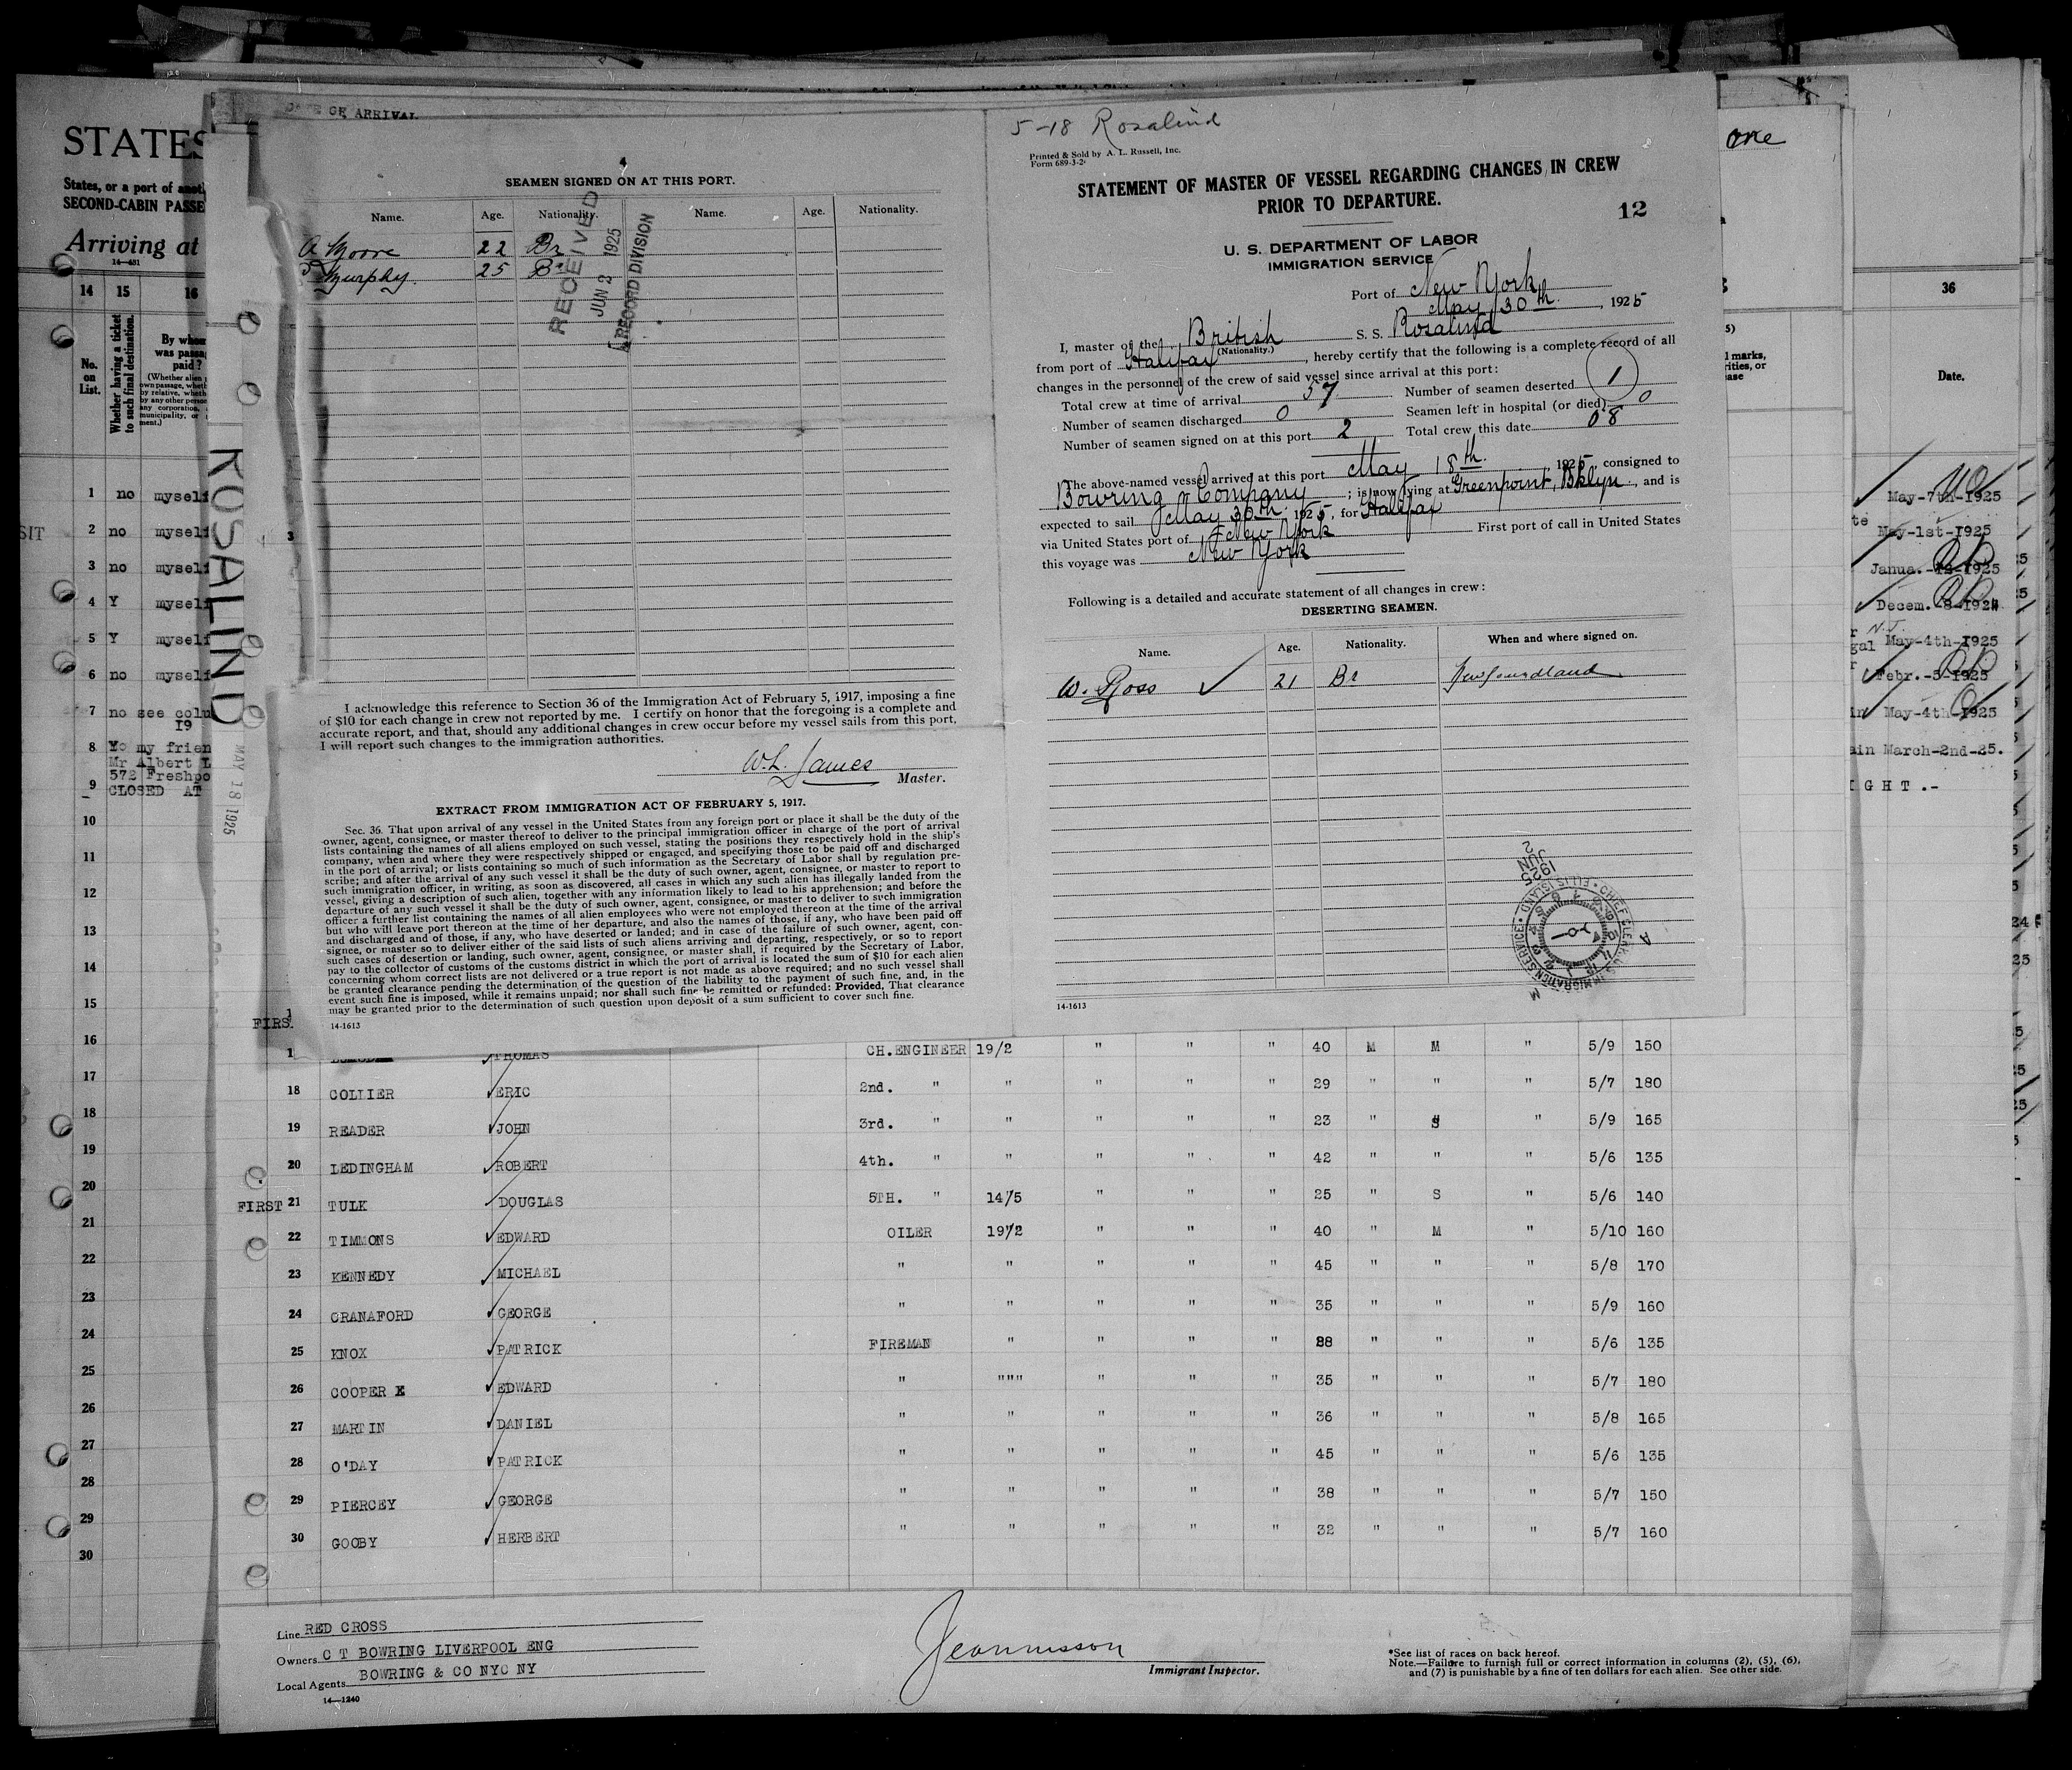 STATES
States, or a port of
SECOND-CABIN PASSE
Arriving at
14-431
14 15 16
No. on List.
Whether having a ticket to such final destination.
By whom was passage paid?
(Whether alien
own passage, wheth
by relative, wheth
by any other perso
any corporation,
municipality, or
ment.)
1 no myself
SIT 2 no myself
3 no myself
4 Y myself
5 Y myself
6 no myself
7 no see colu
19
8 Yo my frien
Mr Albert L
572 Freshpo
9 CLOSED AT
10
11
12
13
14
15
16
17
18
19
20
21
22
23
24
25
26
27
28
29
30
ROSALIND
MAY 18 1925
DATE OF ARRIVAL
4
SEAMEN SIGNED ON AT THIS PORT.
Name. Age. Nationality. Name. Age. Nationality.
A Moore 22 Br
Murphy. 25 Br
RECEIVED
JUN 2 1925
RECORD DIVISION
3
I acknowledge this reference to Section 36 of the Immigration Act of February 5, 1917, imposing a fine
of $10 for each change in crew not reported by me. I certify on honor that the foregoing is a complete and
accurate report, and that, should any additional changes in crew occur before my vessel sails from this port,
I will report such changes to the immigration authorities.
W.L. James
Master.
EXTRACT FROM IMMIGRATION ACT OF FEBRUARY 5, 1917.
Sec. 36. That upon arrival of any vessel in the United States from any foreign port or place it shall be the duty of the
owner, agent, consignee, or master thereof to deliver to the principal immigration officer in charge of the port of arrival
lists containing the names of all aliens employed on such vessel, stating the positions they respectively hold in the ship's
company, when and where they were respectively shipped or engaged, and specifying those to be paid off and discharged
in the port of arrival; or lists containing so much of such information as the Secretary of Labor shall by regulation pre-
scribe; and after the arrival of any such vessel it shall be the duty of such owner, agent, consignee, or master to report to
such immigration officer, in writing, as soon as discovered, all cases in which any such alien has illegally landed from the
vessel, giving a description of such alien, together with any information likely to lead to his apprehension; and before the
departure of any such vessel it shall be the duty of such owner, agent, consignee, or master to deliver to such immigration
officer a further list containing the names of all alien employees who were not employed thereon at the time of the arrival
but who will leave port thereon at the time of her departure, and also the names of those, if any, who have been paid off
and discharged and of those, if any, who have deserted or landed; and in case of the failure of such owner, agent, con-
signee, or master so to deliver either of the said lists of such aliens arriving and departing, respectively, or so to report
such cases of desertion or landing, such owner, agent, consignee, or master shall, if required by the Secretary of Labor,
pay to the collector of customs of the customs district in which the port of arrival is located the sum of $10 for each alien
concerning whom correct lists are not delivered or a true report is not made as above required; and no such vessel shall
be granted clearance pending the determination of the question of the liability to the payment of such fine, and, in the
event such fine is imposed, while it remains unpaid; nor shall such fine be remitted or refunded: Provided, That clearance
may be granted prior to the determination of such question upon deposit of a sum sufficient to cover such fine.
14-1613
5-18 Rosalind
Printed & Sold by A. L. Russell, Inc.
Form 689-3-2
STATEMENT OF MASTER OF VESSEL REGARDING CHANGES IN CREW
PRIOR TO DEPARTURE.
12
U. S. DEPARTMENT OF LABOR
IMMIGRATION SERVICE
Port of New York
May 30th, 1925
I, master of the British S. S. Rosalind
(Nationality.)
from port of Halifax, hereby certify that the following is a complete record of all
changes in the personnel of the crew of said vessel since arrival at this port:
Total crew at time of arrival 57 Number of seamen deserted 1
Number of seamen discharged 0 Seamen left in hospital (or died) 0
Number of seamen signed on at this port 2 Total crew this date 58
The above-named vessel arrived at this port May 18th, 1925, consigned to
Bowring & Company; is now lying at Greenpoint, Bklyn, and is
expected to sail May 30th, 1925, for Halifax
via United States port of New York First port of call in United States
this voyage was New York
Following is a detailed and accurate statement of all changes in crew:
DESERTING SEAMEN.
Name. Age. Nationality. When and where signed on.
W. Ross 21 Br Newfoundland
1925
JUN
2
CHIEF CLERK U.S. IMMIGRATION SERVICE ELLIS ISLAND
A
M
14-1613
one
36
marks,
Date.
May-7th-1925
May-1st-1925
Janua.-12-1925
Decem.-8-1924
N.J.
May-4th-1925
Febr.-5-1925
May-4th-1925
March-2nd-25.
IGHT.-
FIRS
THOMAS CH.ENGINEER 19/2 " " " 40 M M " 5/9 150
18 COLLIER ERIC 2nd. " " " " " 29 " " " 5/7 180
19 READER JOHN 3rd. " " " " " 23 " S " 5/9 165
20 LEDINGHAM ROBERT 4th. " " " " " 42 " " " 5/6 135
FIRST 21 TULK DOUGLAS 5TH. " 14/5 " " " 25 " S " 5/6 140
22 TIMMONS EDWARD OILER 19/2 " " " 40 " M " 5/10 160
23 KENNEDY MICHAEL " " " " " 45 " " " 5/8 170
24 CRANAFORD GEORGE " " " " " 35 " " " 5/9 160
25 KNOX PATRICK FIREMAN " " " " 28 " " " 5/6 135
26 COOPER EDWARD " """ " " " 35 " " " 5/7 180
27 MARTIN DANIEL " " " " " 36 " " " 5/8 165
28 O'DAY PATRICK " " " " " 45 " " " 5/6 135
29 PIERCEY GEORGE " " " " " 38 " " " 5/7 150
30 GOOBY HERBERT " " " " " 32 " " " 5/7 160
Line RED CROSS
Owners C T BOWRING LIVERPOOL ENG
Local Agents BOWRING & CO NYC NY
14-1240
Immigrant Inspector.
*See list of races on back hereof.
Note.—Failure to furnish full or correct information in columns (2), (5), (6),
and (7) is punishable by a fine of ten dollars for each alien. See other side.